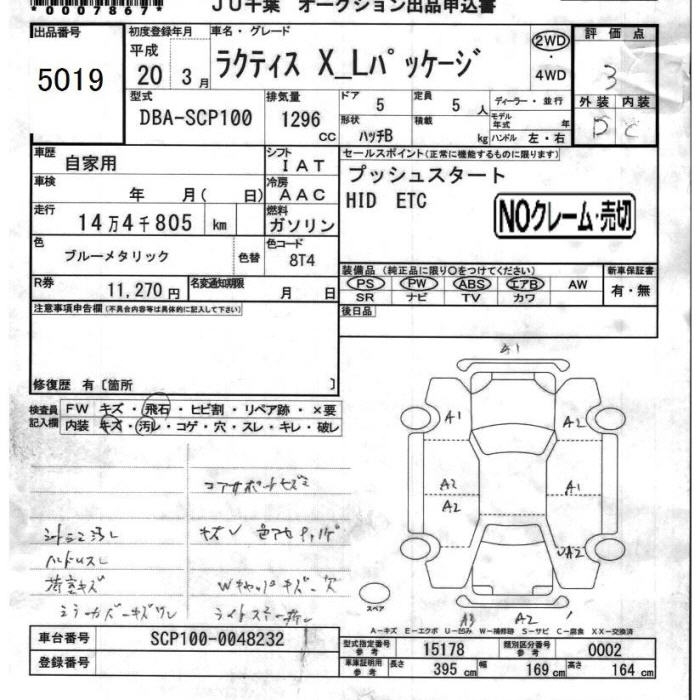 *0007867*
JU千葉 オークション出品申込書
出品番号 5019
初度登録年月 平成 20 3月
車名・グレード ラクティス X_Lパッケージ
2WD・4WD
評価点 3
外装 内装
D C
型式 DBA-SCP100
排気量 1296 cc
ドア 5
定員 5人
形状 ハッチB
積載 kg
ディーラー・並行
モデル年式 年
ハンドル 左・右
車歴 自家用
シフト IAT
車検 年 月( 日)
冷房 AAC
走行 14万4千805 km
燃料 ガソリン
色 ブルーメタリック 色替
色コード 8T4
R券 11,270円
名変通知期限 月 日
セールスポイント(正常に機能するものに限ります)
プッシュスタート
HID ETC
NOクレーム・売切
装備品(純正品に限り○をつけてください)
PS PW ABS エアB AW
SR ナビ TV カワ
新車保証書 有・無
後日品
注意事項申告欄(不具合内容等は具体的に記入して下さい)
修復歴 有〔箇所 〕
検査員記入欄
FW キズ・飛石・ヒビ割・リペア跡・×要
内装 キズ・汚レ・コゲ・穴・スレ・キレ・破レ
コアサポートキズミ
ハンドルスレ
荷室キズ
Wキャップキズ
ミラーカバーキズワレ
A1
A1 A2
A2 A1
A2
A2
A3 A2
スペア
A-キズ E-エクボ U-凹み W-補修跡 S-サビ C-腐食 XX-交換済
車台番号 SCP100-0048232
登録番号
型式指定番号 参考 15178
類別区分番号 参考 0002
車庫証明用 参考 長さ 395 cm 幅 169 cm 高さ 164 cm